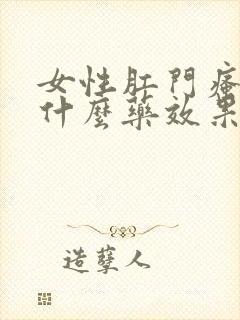 女性肛門瘙
什麼藥效果
造孽人